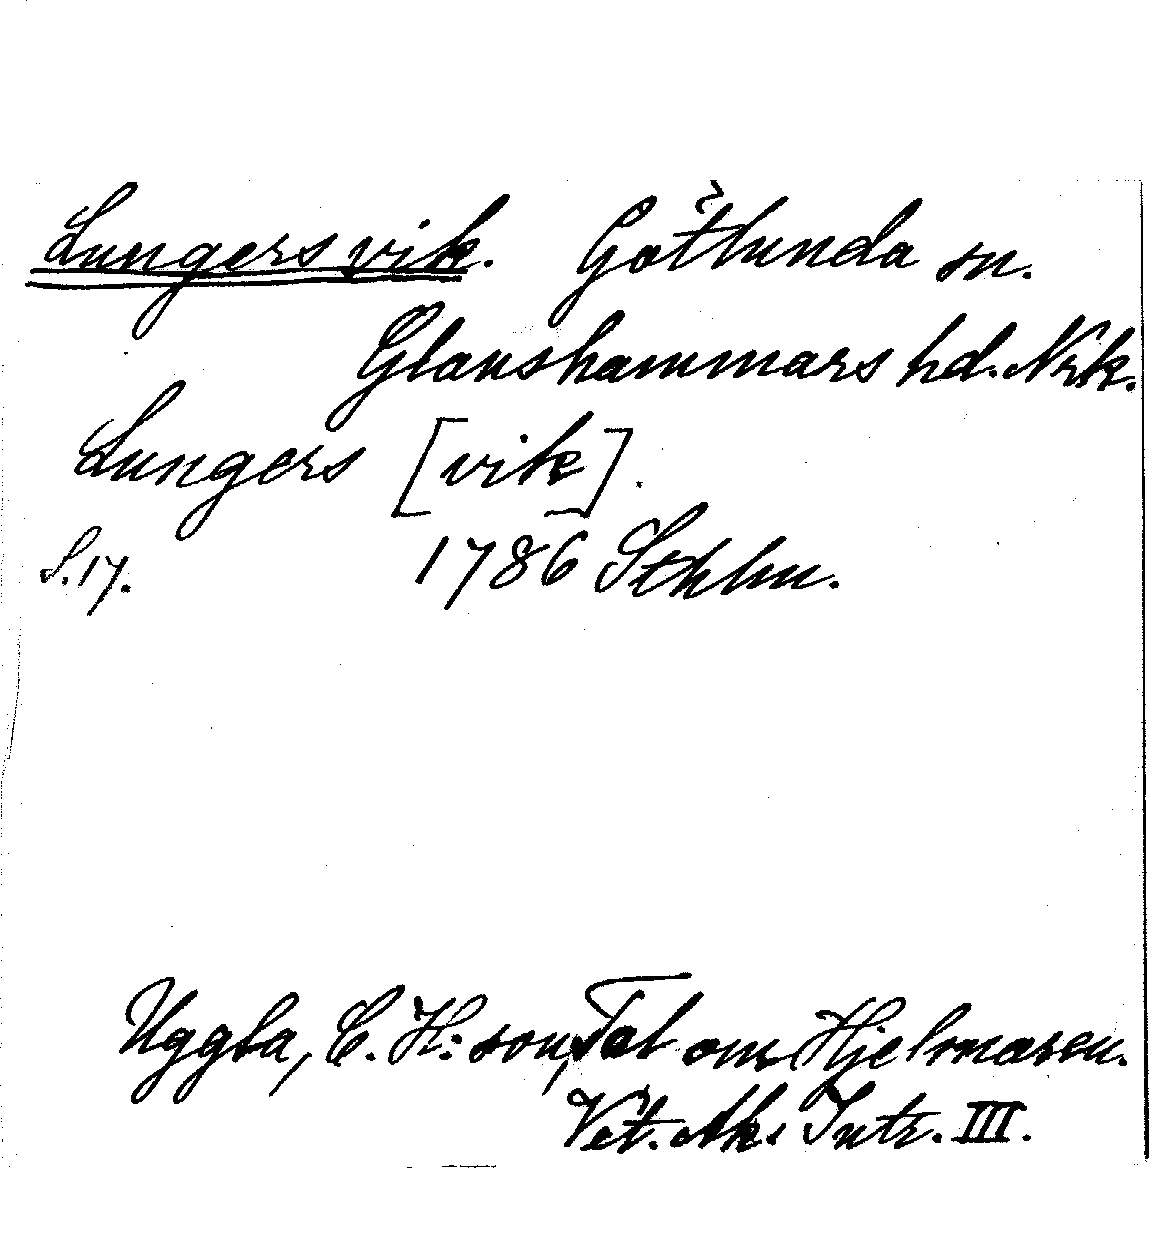 Lungersvik. Götlunda sn.
Glanshammars hd. Nrk.
Lungers [vik].
S. 17. 1786 Sthlm.
Uggla, C. H:son, Tal om Hjelmaren.
Vet. Ak. Intr. III.